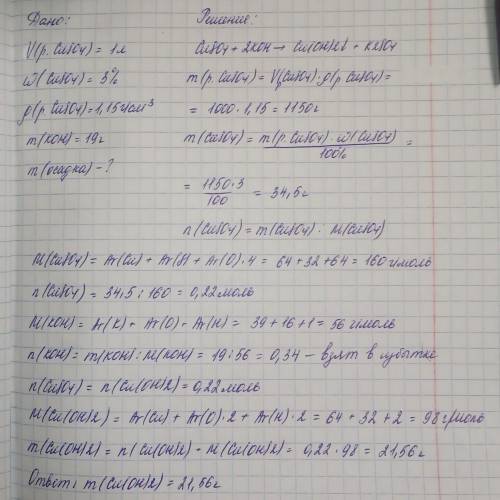 Дано: Решение:
V(р. CuSO4) = 1л CuSO4 + 2KOH → Cu(OH)2↓ + K2SO4
ω(CuSO4) = 3% m(р. CuSO4) = V(CuSO4)·ρ(р CuSO4) =
ρ(р. CuSO4) = 1,15 г/см³ = 1000 · 1,15 = 1150г
m(KOH) = 19г m(CuSO4) = m(р. CuSO4) · ω(CuSO4) / 100% =
m(осадка) - ? = 1150·3 / 100 = 34,5г
n(CuSO4) = m(CuSO4) · M(CuSO4)
M(CuSO4) = Ar(Cu) + Ar(S) + Ar(O)·4 = 64 + 32 + 64 = 160 г/моль
n(CuSO4) = 34,5 : 160 = 0,22 моль
M(KOH) = Ar(K) + Ar(O) + Ar(H) = 39 + 16 + 1 = 56 г/моль
n(KOH) = m(KOH) : M(KOH) = 19 : 56 = 0,34 – взят в избытке
n(CuSO4) = n(Cu(OH)2) = 0,22 моль
M(Cu(OH)2) = Ar(Cu) + Ar(O)·2 + Ar(H)·2 = 64 + 32 + 2 = 98 г/моль
m(Cu(OH)2) = n(Cu(OH)2) · M(Cu(OH)2) = 0,22 · 98 = 21,56г
Ответ: m(Cu(OH)2) = 21,56г